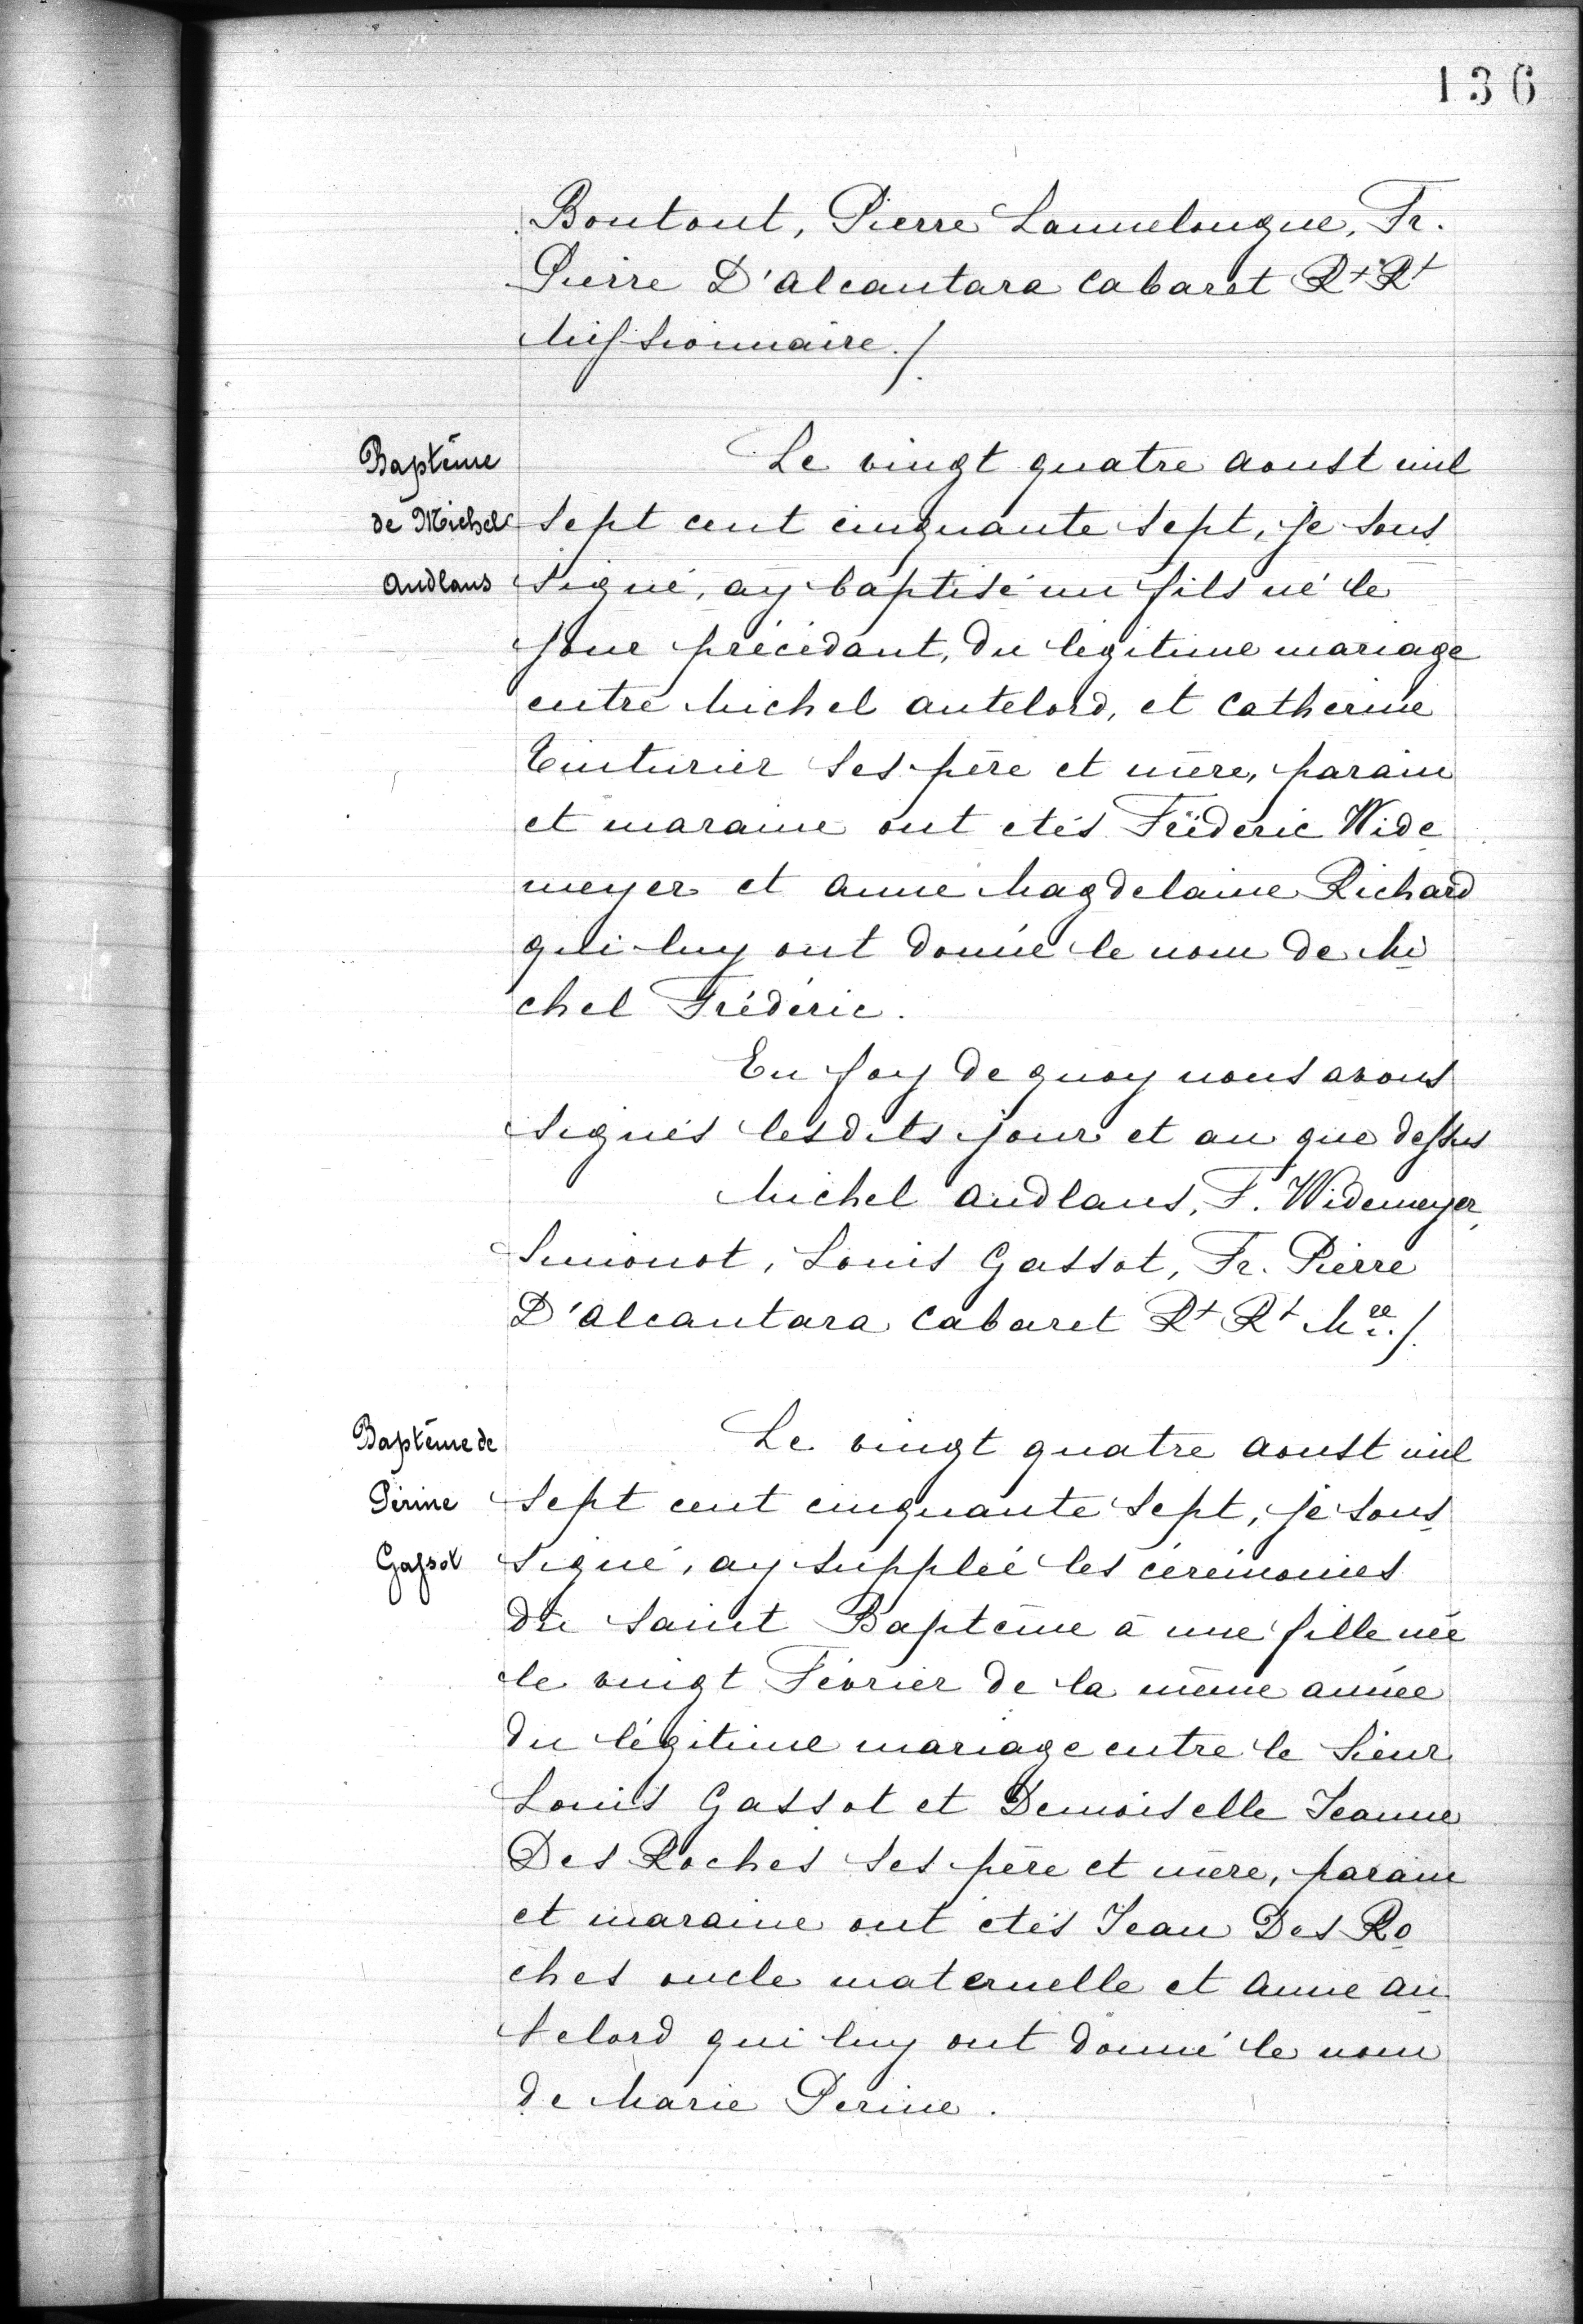 136
Boutout, Pierre Lannelongue, Fr.
Pierre D'alcantara Cabaret Rt Rt
Missionnaire./.
Baptême
de Michel
Audlaus
Le vingt quatre aoust mil
sept cent cinquante sept, je sous
signé, ay baptisé un fils né le
jour précédant, du légitime mariage
entre Michel autelord, et Catherine
Tinturier ses père et mère, parain
et maraine ont etés Fréderic Wide
meyer et anne Magdelaine Richard
qui luy ont donné le nom de Mi
chel Fréderic.
En foy de quoy nous avons
signés les dits jour et an que dessus
Michel audlaus, F. Widemeyer,
Simonot, Louis Gassot, Fr. Pierre
D'alcantara Cabaret Rt Rt Mre./.
Baptême de
Périne
Gassot
Le vingt quatre aoust mil
sept cent cinquante sept, je sous
signé, ay supplée les cérémonies
du Saint Baptême à une fille née
le vingt Février de la même année
du légitime mariage entre le Sieur
Louis Gassot et Demoiselle Jeanne
Des Roches ses père et mère, parain
et maraine ont etés Jean Des Ro
ches oncle maternelle et anne au
telord qui luy ont donné le nom
de Marie Perine.